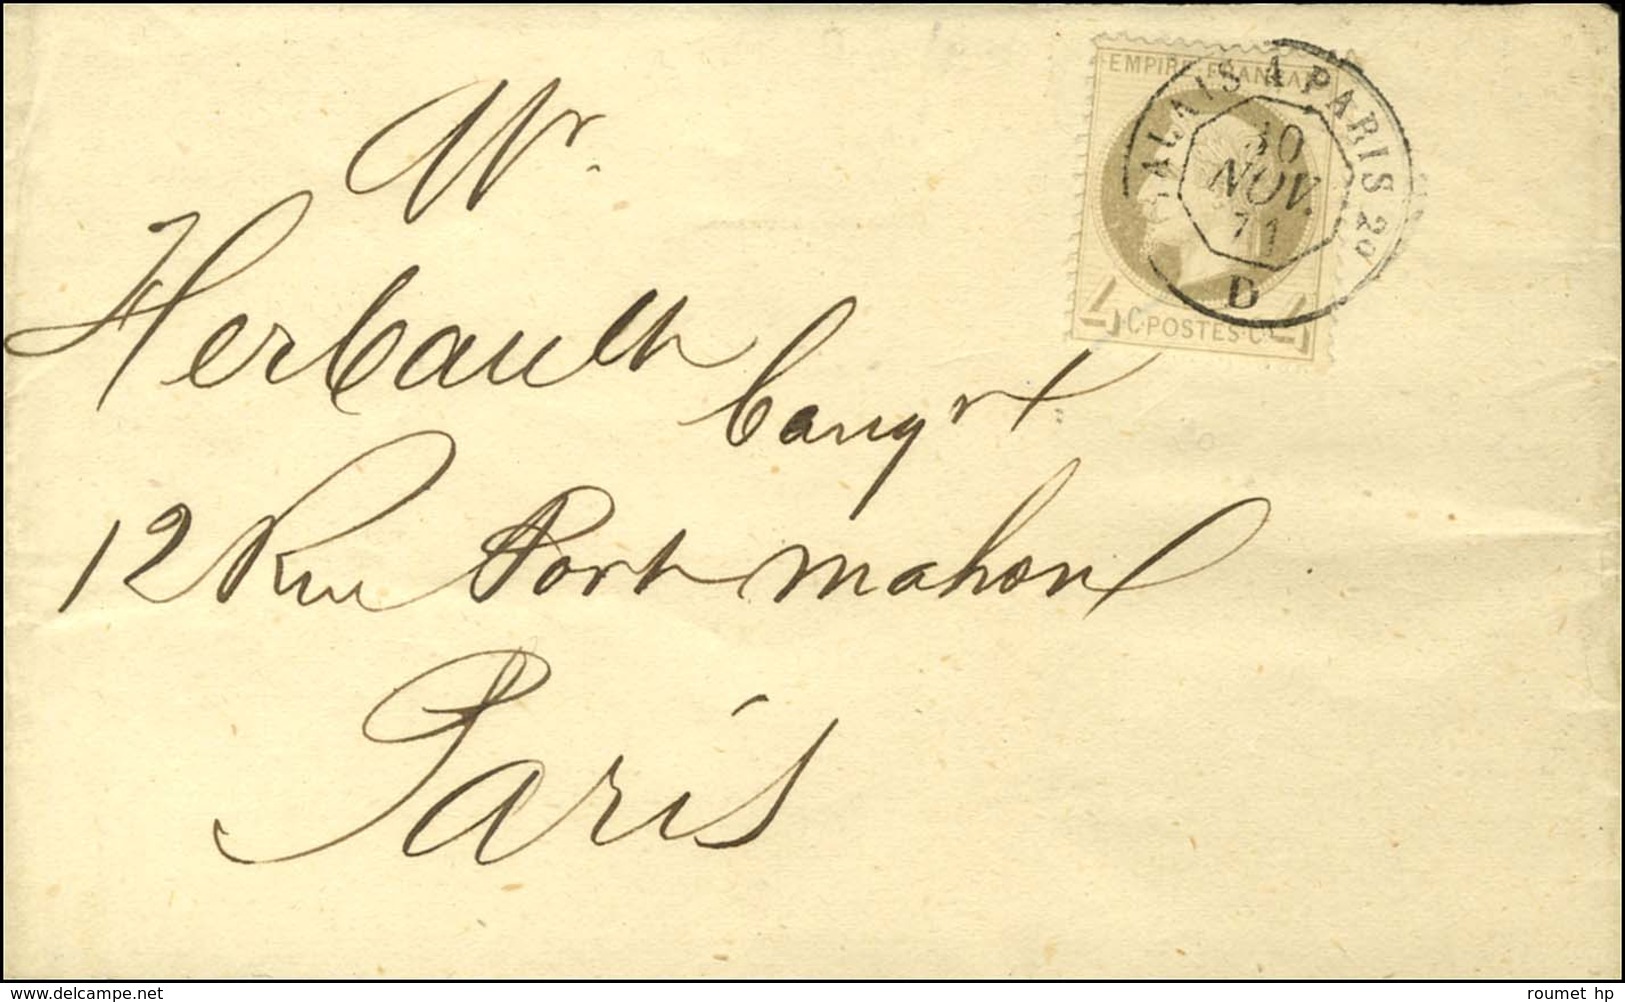 EMPIRE FRANÇAIS
CALAIS A PARIS 2º
30
NOV.
71
D
4 C. POSTES C. 4
Mr.
Herbault
banqr
12 Rue Port mahon
Paris
www.delcampe.net
roumet hp